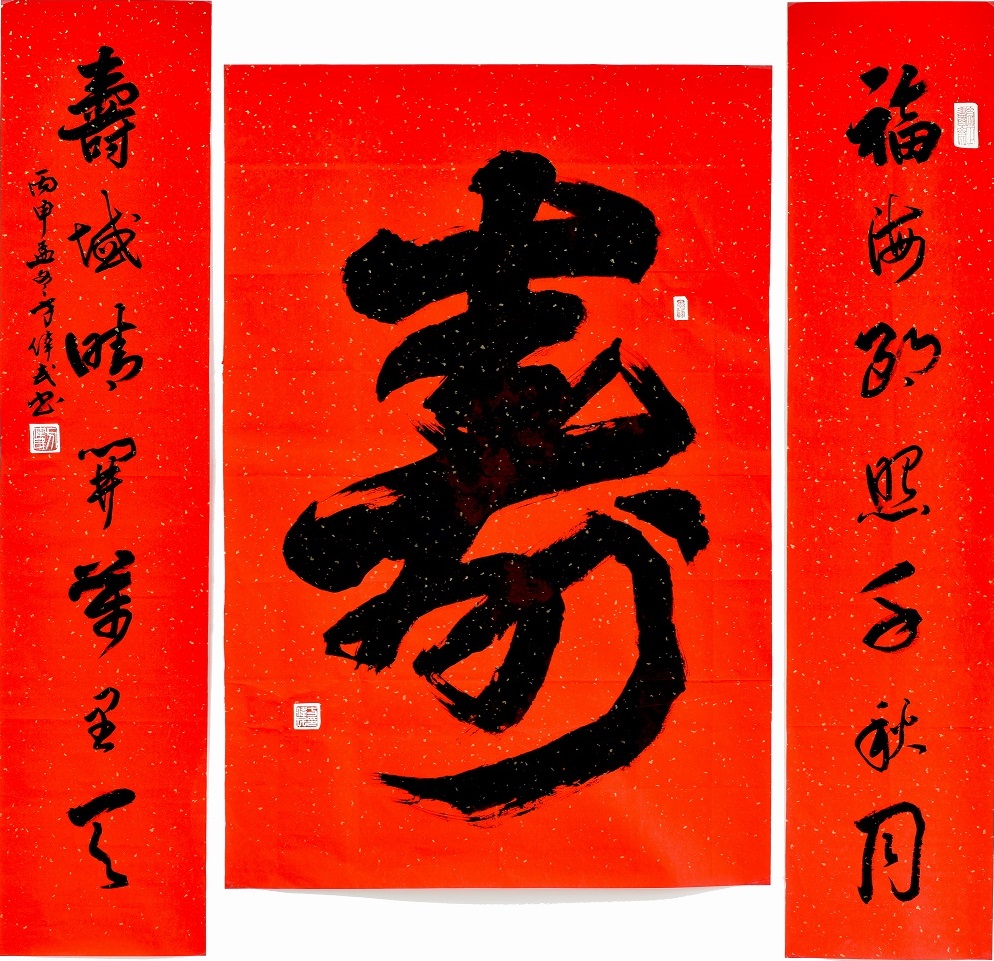 福海朗照千秋月
壽
壽域晴開萬里天
丙申孟冬方偉武书